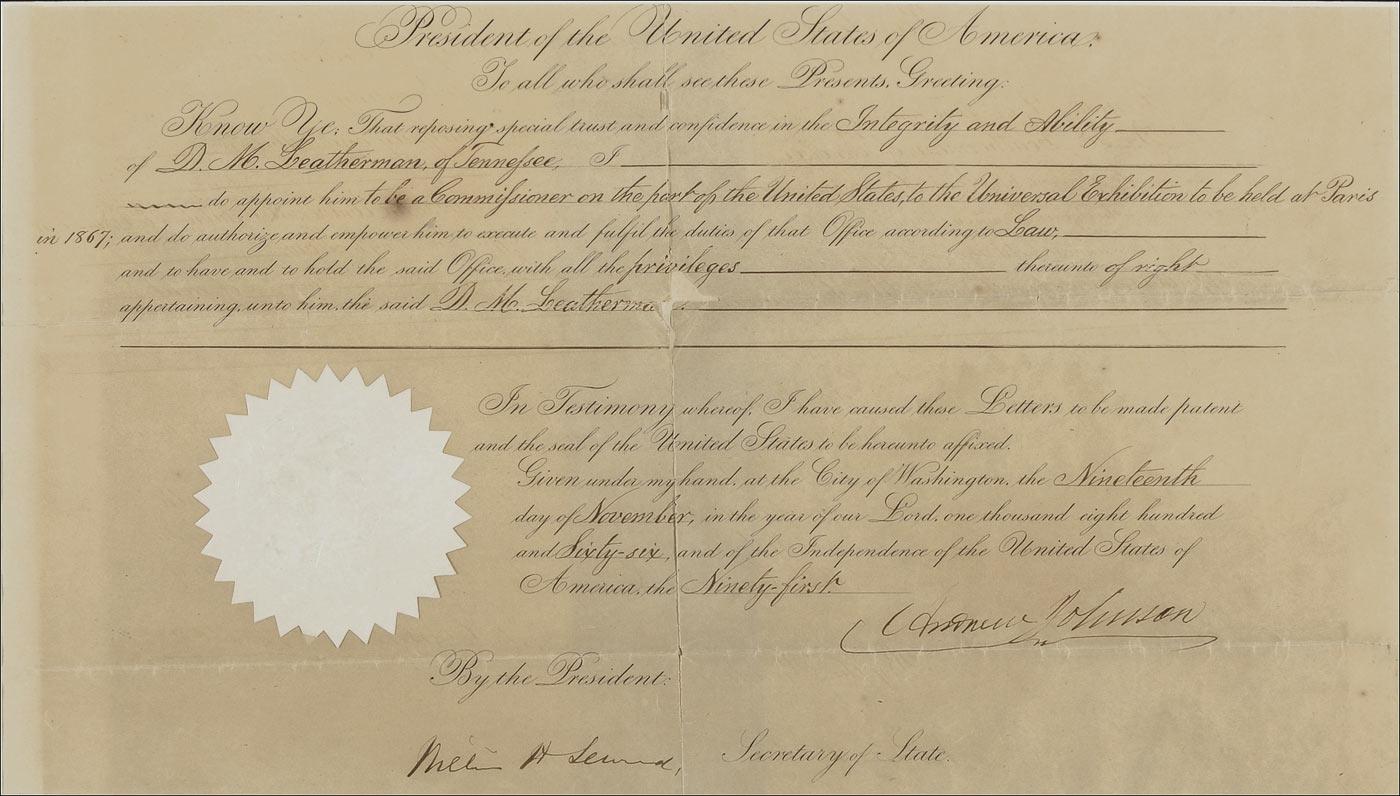 President of the United States of America.
To all who shall see these Presents, Greeting:
Know Ye; That reposing special trust and confidence in the Integrity and Ability
of D. M. Leatherman, of Tennessee, I
do appoint him to be a Commissioner on the part of the United States, to the Universal Exhibition to be held at Paris
in 1867; and do authorize and empower him to execute and fulfil the duties of that Office according to Law,
and to have and to hold the said Office, with all the privileges thereunto of right
appertaining, unto him, the said D. M. Leatherma .
In Testimony whereof, I have caused these Letters to be made patent
and the seal of the United States to be hereunto affixed.
Given under my hand, at the City of Washington, the Nineteenth
day of November, in the year of our Lord, one thousand eight hundred
and Sixty-six, and of the Independence of the United States of
America, the Ninety-first.
Andrew Johnson
By the President:
William H Seward, Secretary of State.